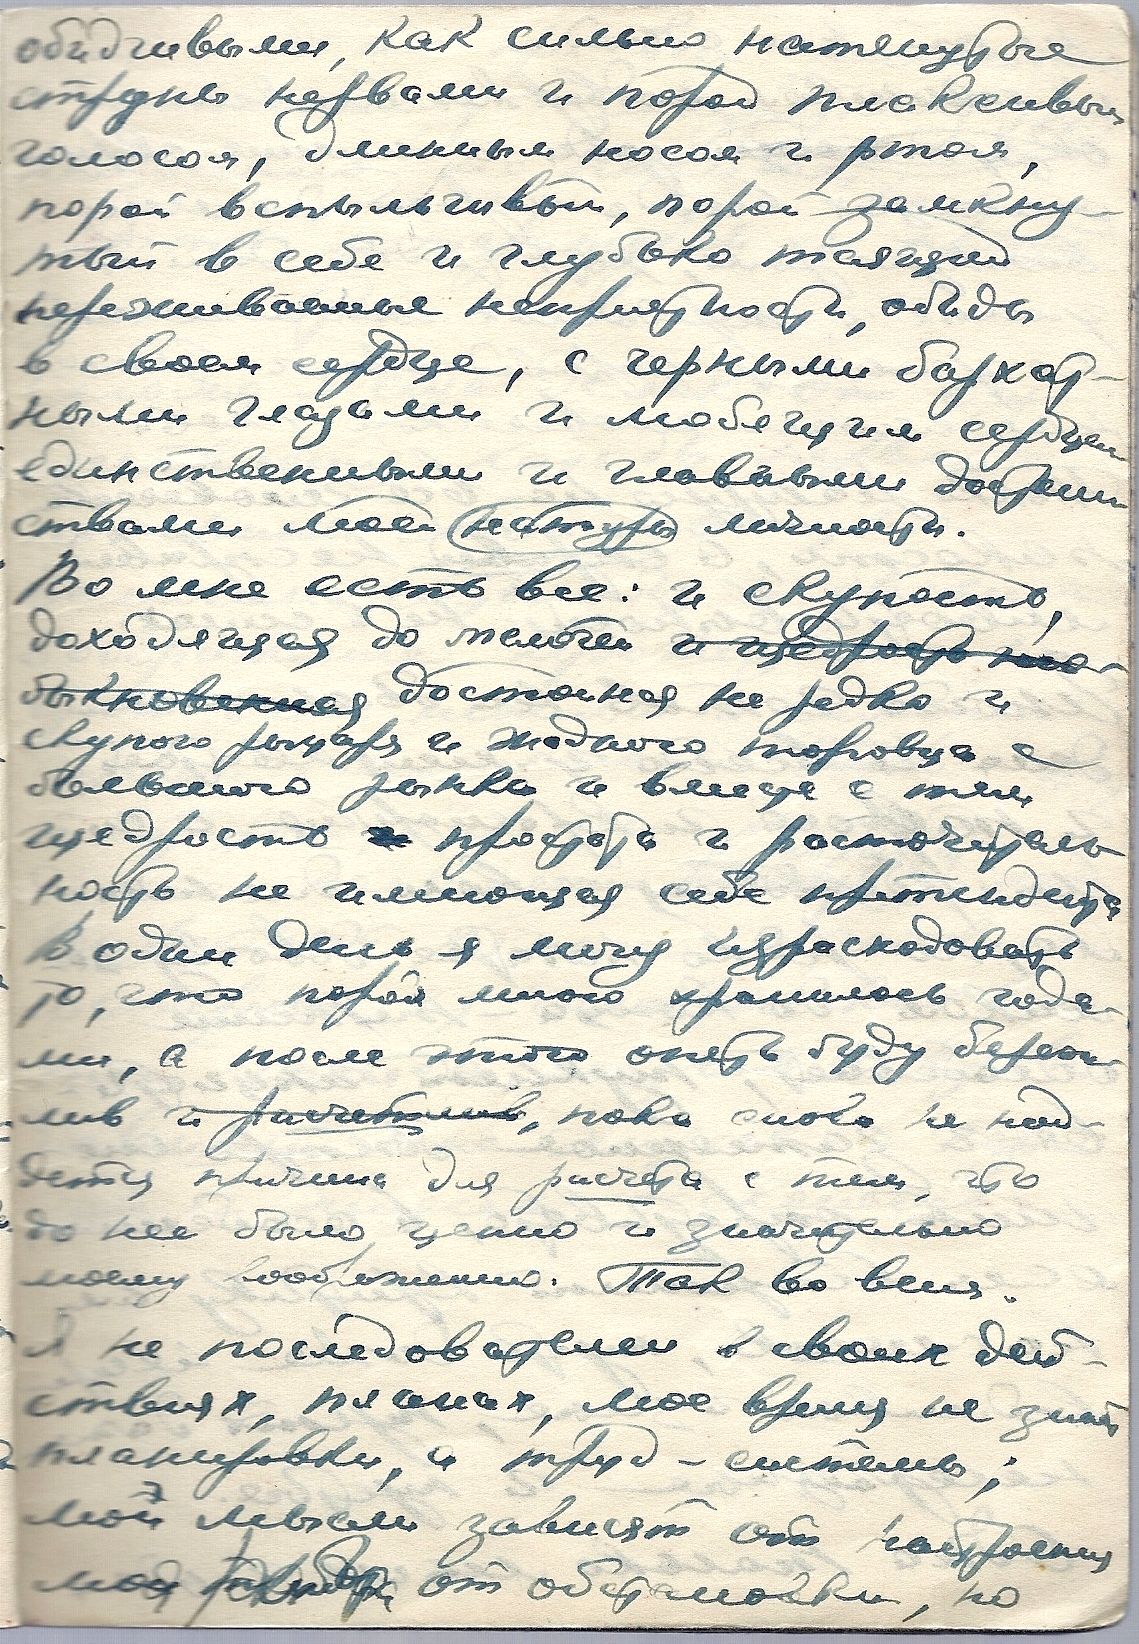 обидчивыми, как сильно натянутые
струны нервами и порой плаксивым
голосом, длинным носом и ртом,
порой вспыльчивый, порой замкну-
тый в себе и глубоко таящий
переживаемые неприятности, обиды
в своем сердце, с черными бархат-
ными глазами и любящим сердцем
единственными и главными достоин-
ствами моей натуры личности.
Во мне есть все: и скупость,
доходящая до мелочей и щедрость нео-
быкновенная достойная не редко и
скупого рыцаря и жадного торговца с
большого рынка и вместе с тем
щедрость простота и расточитель
ность не имеющая себе претендента
В один день я могу израсходовать
то, что порой много хранилось года-
ми, а после этого опять буду береж-
лив и расчетлив, пока снова не най-
дется причина для расчета с тем, что
до нее было ценно и значительно
моему воображению. Так во всем.
Я не последователен в своих дей-
ствиях, планах, мое время не знает
планировки, а труд - системы;
мои мысли зависят от настроения
моя от обстановки, но